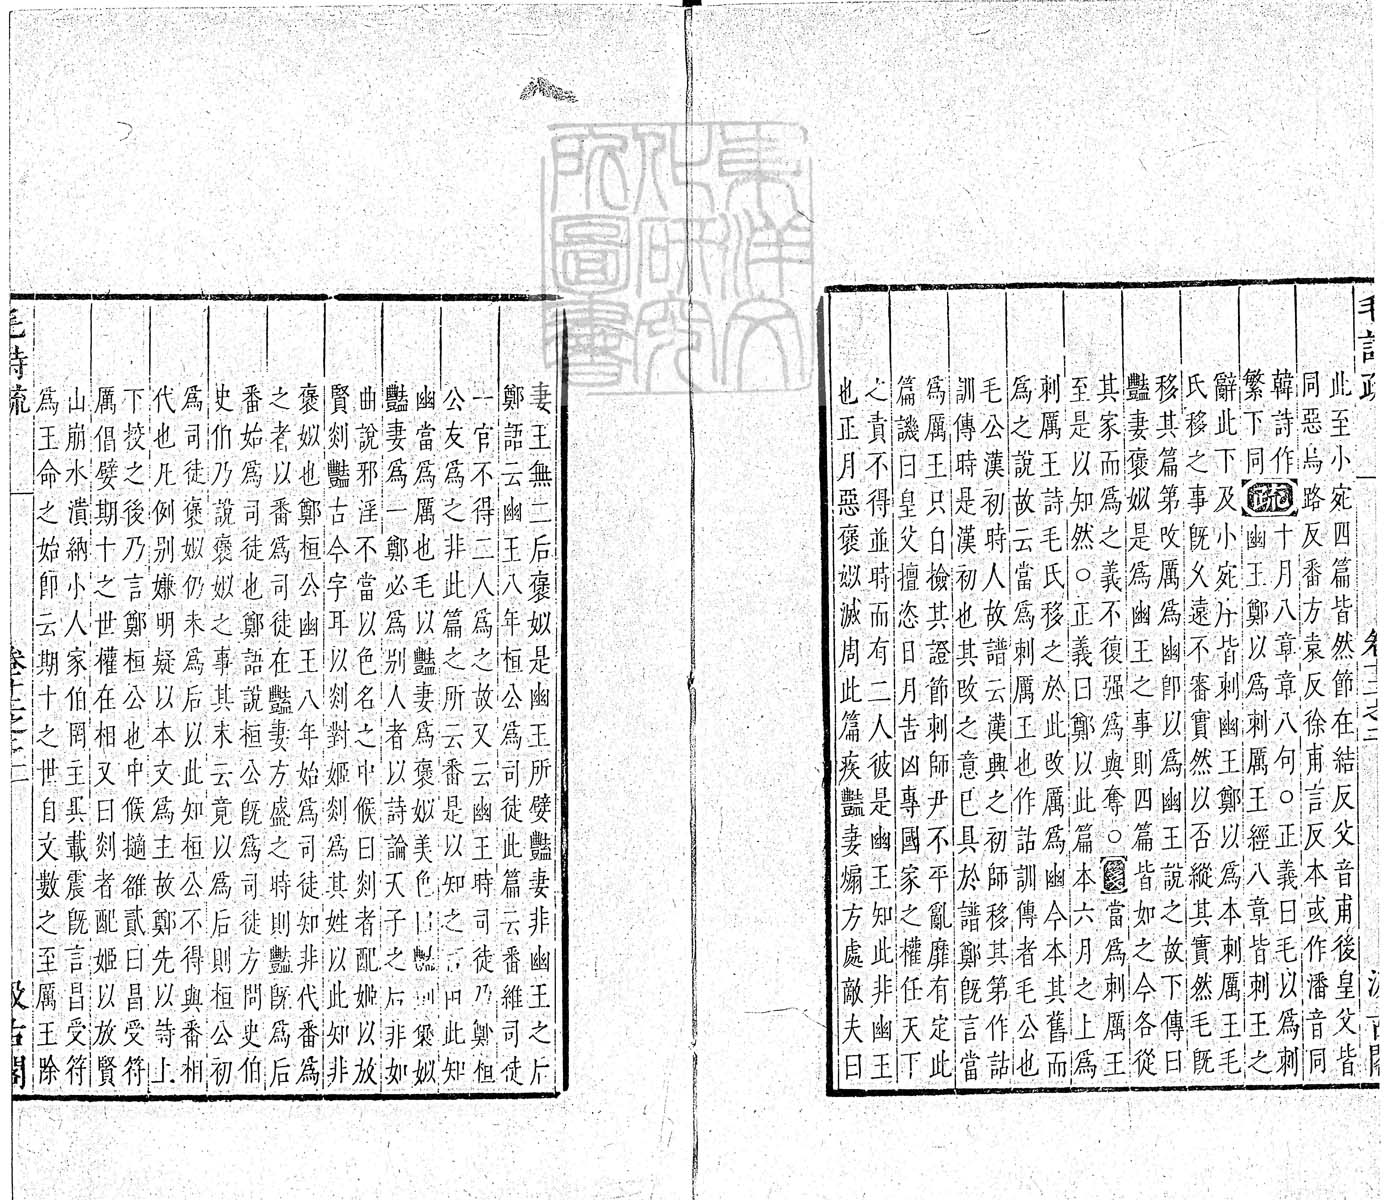 毛詩疏
卷十二之二
汲古閣
此至小宛四篇皆然節在結反父音甫後皇父皆
同惡烏路反番方袁反徐甫言反本或作潘音同
韓詩作
繁下同
疏
十月八章章八句○正義曰毛以爲刺
幽王鄭以爲刺厲王經八章皆刺王之
辭此下及小宛片皆刺幽王鄭以爲本刺厲王毛
氏移之事旣久遠不審實然以否縱其實然毛旣
移其篇第改厲爲幽卽以爲幽王說之故下傳曰
豔妻褒姒是爲幽王之事則四篇皆如之今各從
其家而爲之義不復强爲與奪○箋當爲刺厲王
至是以知然○正義曰鄭以此篇本六月之上爲
刺厲王詩毛氏移之於此改厲爲幽今本其舊而
爲之說故云當爲刺厲王也作詁訓傳者毛公也
毛公漢初時人故譜云漢興之初師移其第作詁
訓傳時是漢初也其改之意已具於譜鄭旣言當
爲厲王只白撿其證節刺師尹不平亂靡有定此
篇譏曰皇父擅恣日月告凶專國家之權任天下
之責不得並時而有二人彼是幽王知此非幽王
也正月惡褒姒滅周此篇疾豔妻煽方處敵夫曰
妻王無二后褒姒是幽王所嬖豔妻非幽王之片
鄭語云幽王八年桓公爲司徒此篇云番維司徒
一官不得二人爲之故又云幽王時司徒乃鄭桓
公友爲之非此篇之所云番是以知之言由此知
幽當爲厲也毛以豔妻爲褒姒美色曰豔則褒姒
豔妻爲一鄭必爲别人者以詩論天子之后非如
曲說邪淫不當以色名之中候曰剡者配姬以放
賢剡豔古今字耳以剡對姬剡爲其姓以此知非
褒姒也鄭桓公幽王八年始爲司徒知非代番爲
之者以番爲司徒在豔妻方盛之時則豔旣爲后
番始爲司徒也鄭語說桓公旣爲司徒方問史伯
史伯乃說褒姒之事其末云竟以爲后則桓公初
爲司徒褒姒仍未爲后以此知桓公不得與番相
代也凡例别嫌明疑以本文爲主故鄭先以詩上
下挍之後乃言鄭桓公也中候擿雒貳曰昌受符
厲倡嬖期十之世權在相又曰剡者配姬以放賢
山崩水潰納小人家伯罔主異載震旣言昌受符
爲王命之始卽云期十之世自文數之至厲王除
毛詩疏
卷十二之二
汲古閣
東洋文化研究所圖書